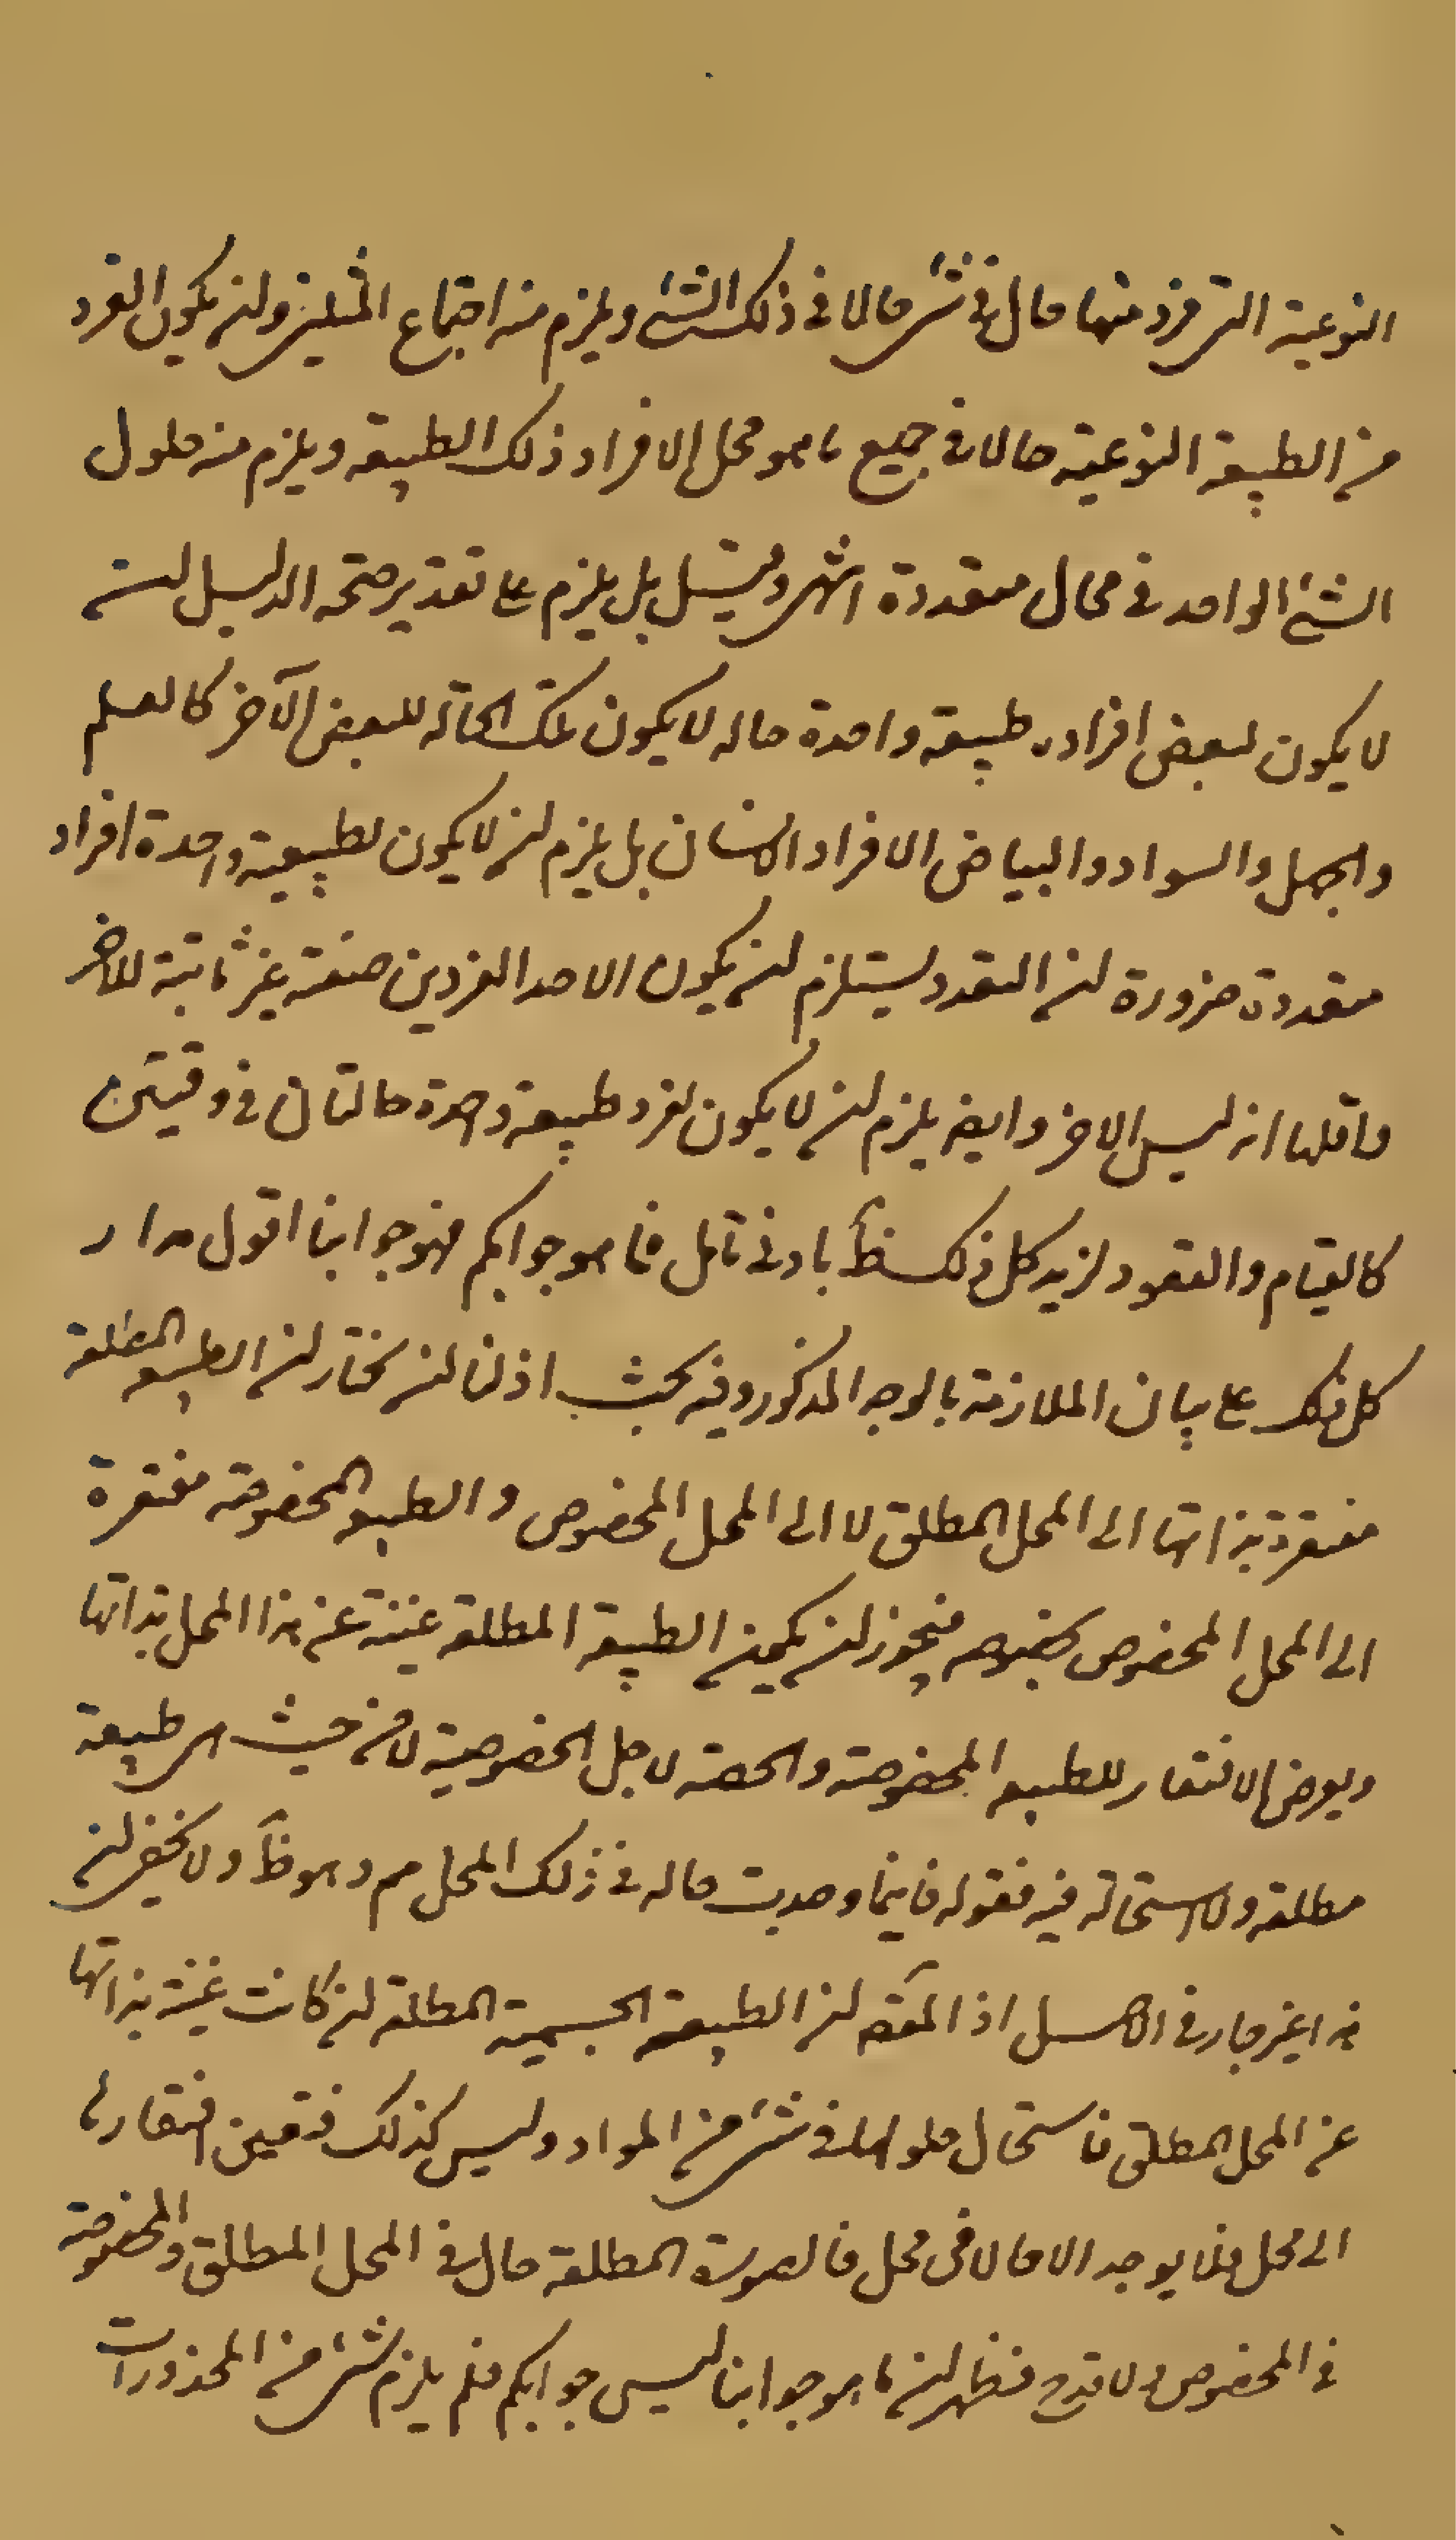 النوعية التى فرد منها حال فى شئ حالا فى ذلك الشئ ويلزم منه اجتماع المثلين وان يكون الفرد
من الطبيعة النوعية حالا فى جميع ما هو محل الافراد ذلك الطبيعة ويلزم منه حلول
الشئ الواحد فى محال متعددة انتهى وليتسل بل يلزم على تقدير صحة الدليل ان
لا يكون لبعض افراد طبيعة واحدة حاله لا يكون تلك الحالة للبعض الآخر كالعلم
والجهل والسواد والبياض الافراد الانسان بل يلزم ان لا يكون لطبيعة واحدة افراد
متعددة ضرورة ان التعدد يستلزم ان يكون الاحد الفردين صفة غير ثابتة للاخر
واقلها انه ليس الاخر وايض يلزم ان لا يكون لفرد طبيعة واحدة حالتان فى وقتين
كالقيام والقعود لزيد كل ذلك ظ بادنى تامل فما هو جوابكم فهو جوابنا اقول مدار
كل ذلك على بيان الملازمة بالوجه المذكور وفيه بحث اذ لنا ان نختار ان الطبيعة المطلقة
مفتقرة بذاتها الى المحل المطلق لا الى المحل المخصوص والطبيعة المخصوصة مفتقرة
الى المحل المخصوص بخصوصه فيجوز ان يكون الطبيعة المطلقة غنية عن هذا المحل بذاتها
ويعرض الافتقار للطبيعة المخصوصة والحصة لاجل الخصوصية لا من حيث هى طبيعة
مطلقة ولا استحالة فيه فقوله فاينما وجدت حاله فى ذلك المحل مم وهو ظ ولا يخفى ان
هذا غير جار فى الاصل اذ المقصم ان الطبيعة الجسمية المطلقة ان كانت غنية بذاتها
عن المحل المطلق فاستحال حلولها فى شئ من المواد وليس كذلك فتعين افتقارها
الى محل فلا يوجد الا حالا فى محل فالصورة المطلقة حال فى المحل المطلق والمخصوصة
فى المخصوص ولا قدح فظهر ان ما هو جوابنا ليس جوابكم فلم يلزم شئ من المحذورات